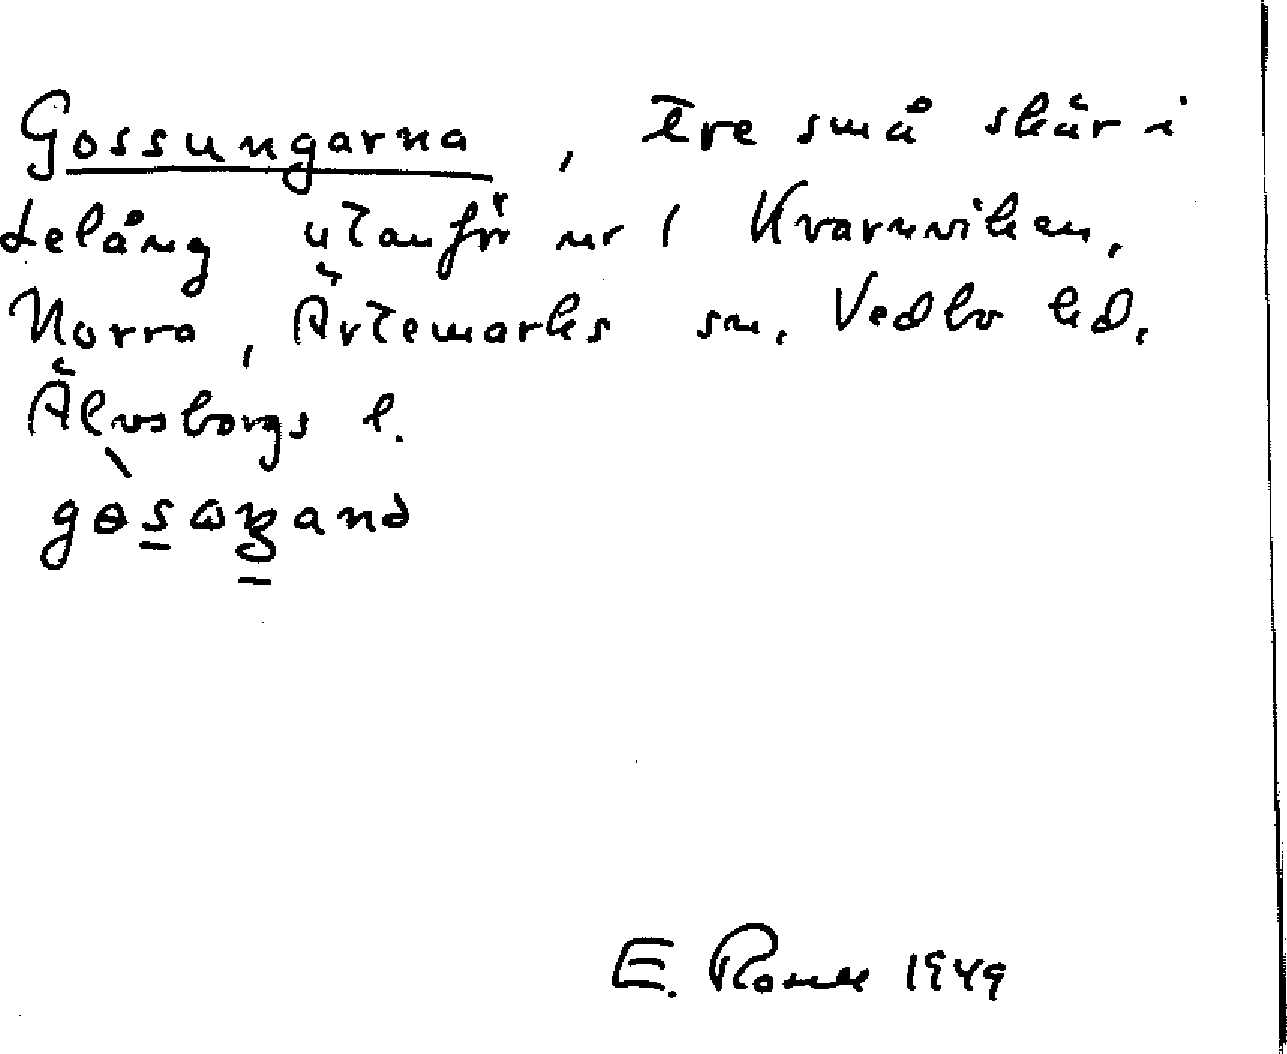 Gossungarna, tre små skär i
Lelång utanför nr 1 Kvarnviken,
Norra, Ärtemarks sn. Vedbo hd.
Älvsborgs l.
E. 1949